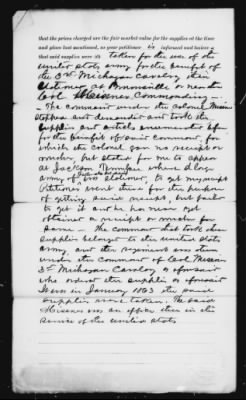 that the prices charged are the fair market value for the supplies at the time
and place last mentioned, as your petitioner is informed and believes
that said supplies were taken for the use of the
United States army for the benefit of
the 3rd Michigan Cavalry then
stationed at Brownsville
Col. Misener Commanding —
The command under the Colonel Misener
stopped and took the
supplies and articles enumerated
for the benefit of said command, for
which the colonel gave no receipt or
voucher, but stated for me to appear
at Jackson Tennessee where a large
army of was stationed, to get my receipt
Petitioner went there for the purpose
of getting said receipt, but failed
to get it and he has never yet
obtained a receipt or voucher for
same — The command that took these
supplies belonged to the United States
army, and the regiment was then
under the command of Col Misener
3rd Michigan Cavalry as aforesaid
who ordered the supplies as aforesaid
It was in January 1863 the said
supplies were taken. The said
Misener was an officer then in the
service of the United States